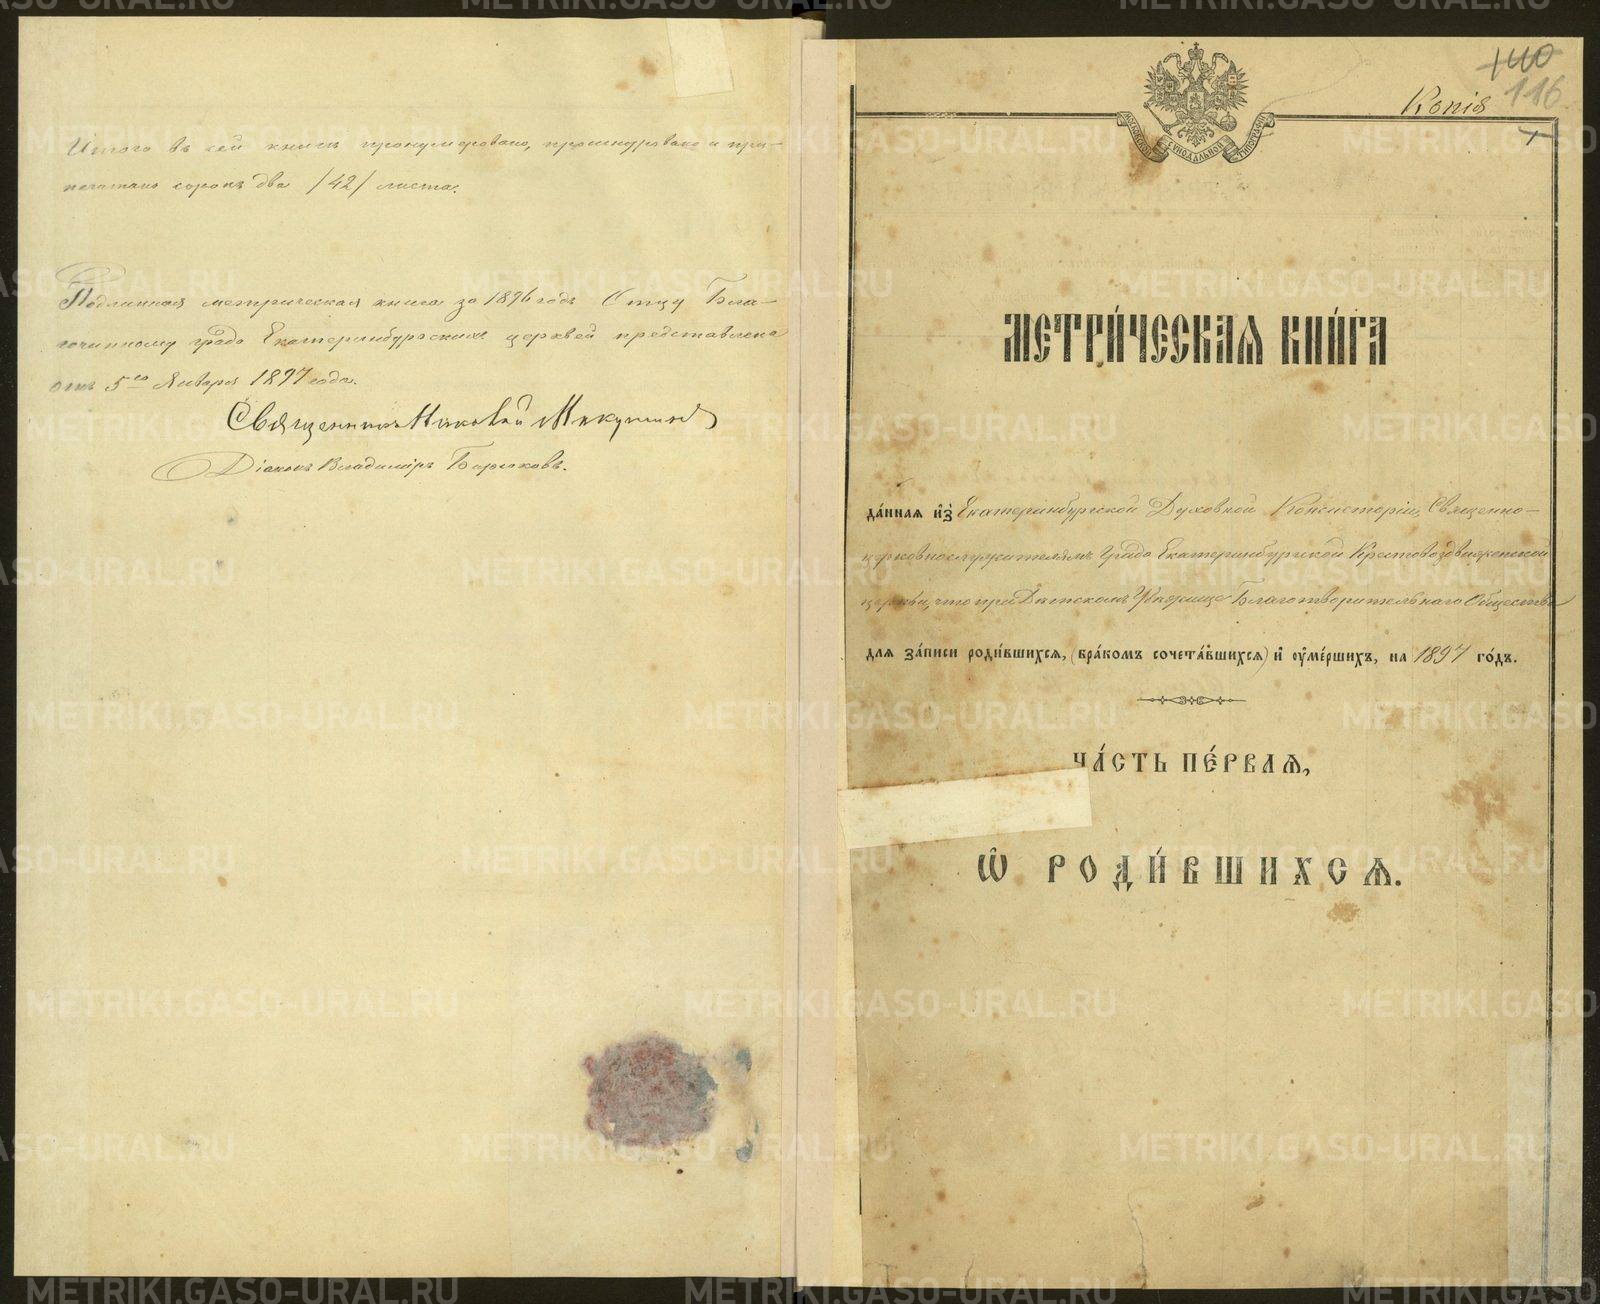 Итого въ сей книгѣ пронумеровано, прошнуровано и при-
печатано сорокъ два /42/ листа.
Подлинная метрическая книга за 1896 годъ Отцу Бла-
гочинному града Екатеринбургскихъ церквей представлена
отъ 5го Января 1897 года.
Священникъ Макушинъ
Діаконъ Владиміръ Бирюковъ.
110
116
Копія
МОСКОВСКОЙ СѴНОДАЛЬНОЙ ТИПОГРАФІИ
МЕТРИ́ЧЕСКАѦ КНИ́ГА
да́ннаѧ и҆з̾ Екатеринбургской Духовной Консисторіи, Священно-
церковнослужителямъ града Екатеринбургской Крестовоздвиженской
церкви, что при Дѣтскомъ Убѣжищѣ Благотворительнаго Общества
для за́писи роди́вшихсѧ, (бра́комъ сочета́вшихсѧ) и҆ ᲂу҆ме́ршихъ, на 1897 го́дъ.
ЧА́СТЬ ПЕ́РВАѦ,
Ѽ РОДИ́ВШИХСѦ.
METRIKI.GASO-URAL.RU